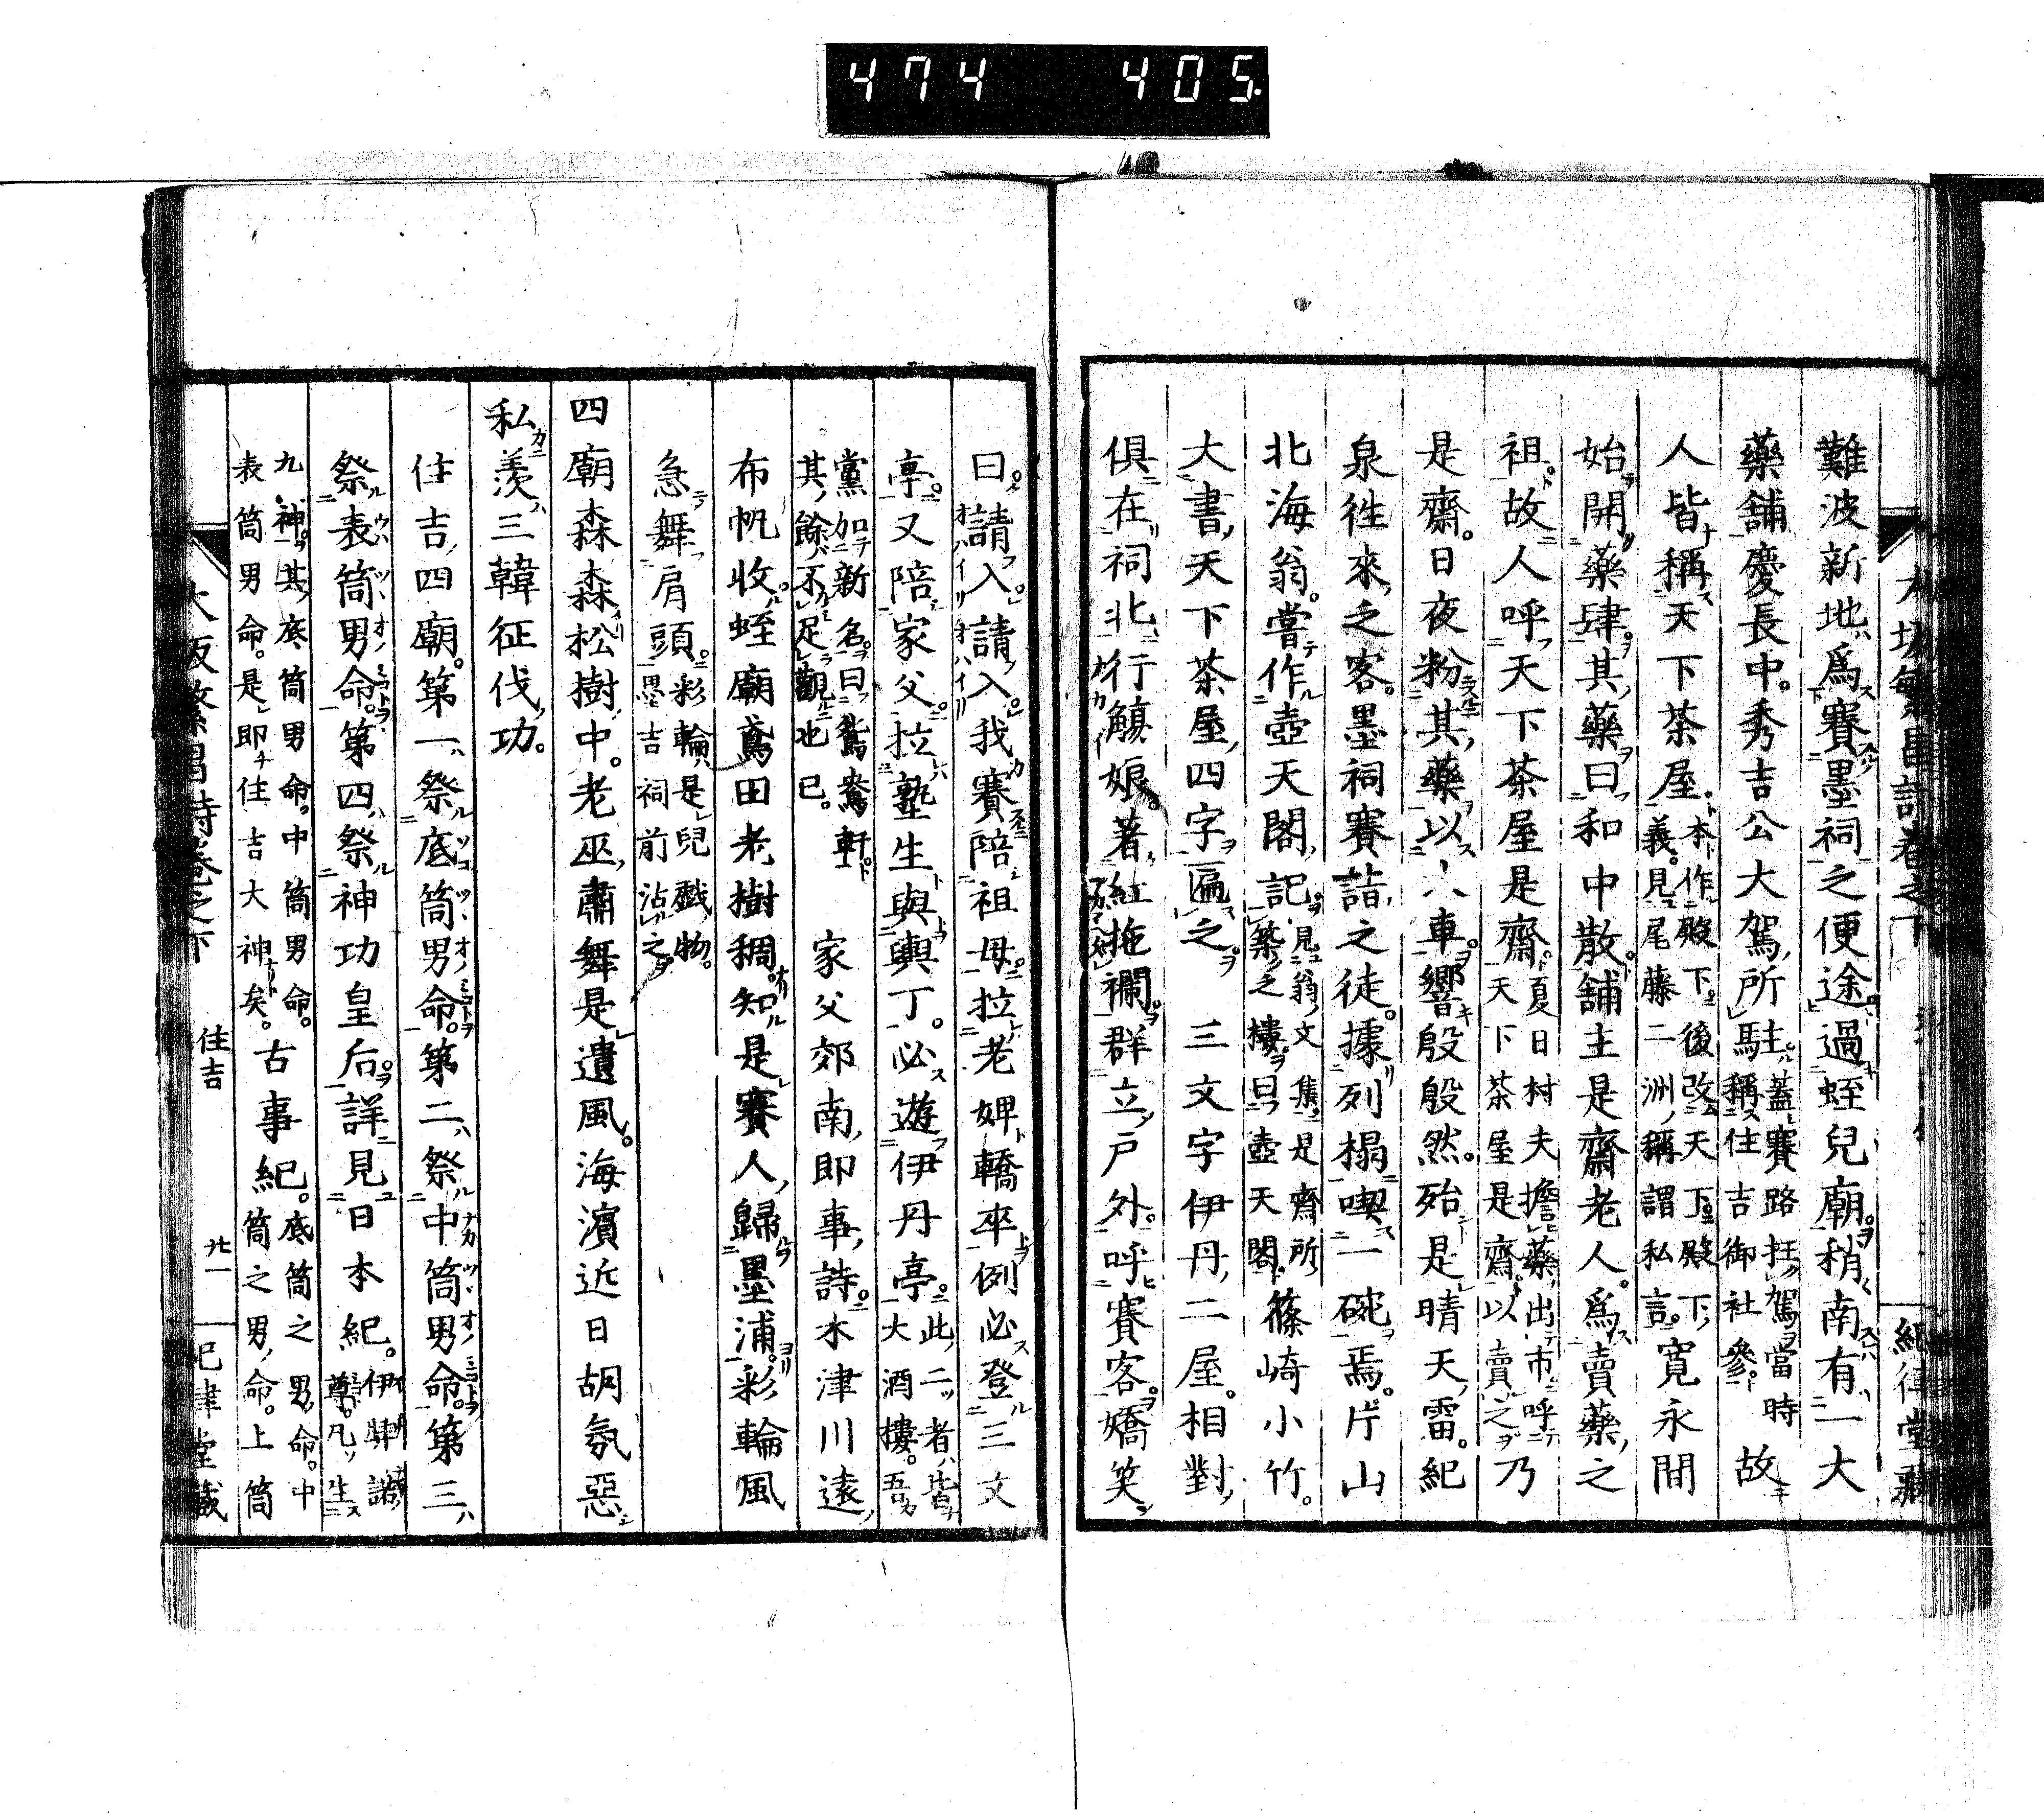 474 405.
難波新地爲賽墨祠之便途過蛭兒廟稍南有一大
藥舖慶長中秀吉公大駕所駐蓋賽路抂駕當時稱住吉御社參故
人皆稱天下茶屋本作殿下後改天下殿下義見尾藤二洲稱謂私言寛永間
始開藥肆其藥曰和中散舖主是齋老人爲賣藥之
祖故人呼天下茶屋是齋夏日村夫擔藥出市呼天下茶屋是齋以賣之乃
是齋日夜粉其藥以八車響殷殷然殆是晴天雷紀
泉徃來之客墨祠賽詣之徒據列榻喫一碗焉片山
北海翁嘗作壺天閣記見翁文集是齋所築之樓曰壺天閣篠崎小竹
大書天下茶屋四字匾之 三文字伊丹二屋相對
俱在祠北行觴娘著紅拖襴群立戸外呼賽客嬌笑
曰請入請入我賽陪祖母拉老婢轎卒例必登三文
亭又陪家父拉塾生與輿丁必遊伊丹亭此二者皆大酒樓吾
黨加新名曰鴛鴦軒其餘不足觀也已 家父郊南即事詩木津川遠
布帆收蛭廟鳶田老樹稠知是賽人歸墨浦彩輪風
急舞肩頭彩輪是兒戲物墨吉祠前沽之
四廟森森松樹中老巫肅舞是遺風海濱近日胡氛惡
私羨三韓征伐功
住吉四廟第一祭底筒男命第二祭中筒男命第三
祭表筒男命第四祭神功皇后詳見日本紀伊弉諾尊凡生
九神其底筒男命中筒男命表筒男命是即住吉大神矣古事紀底筒之男命中筒之男命上筒
住吉
廿一